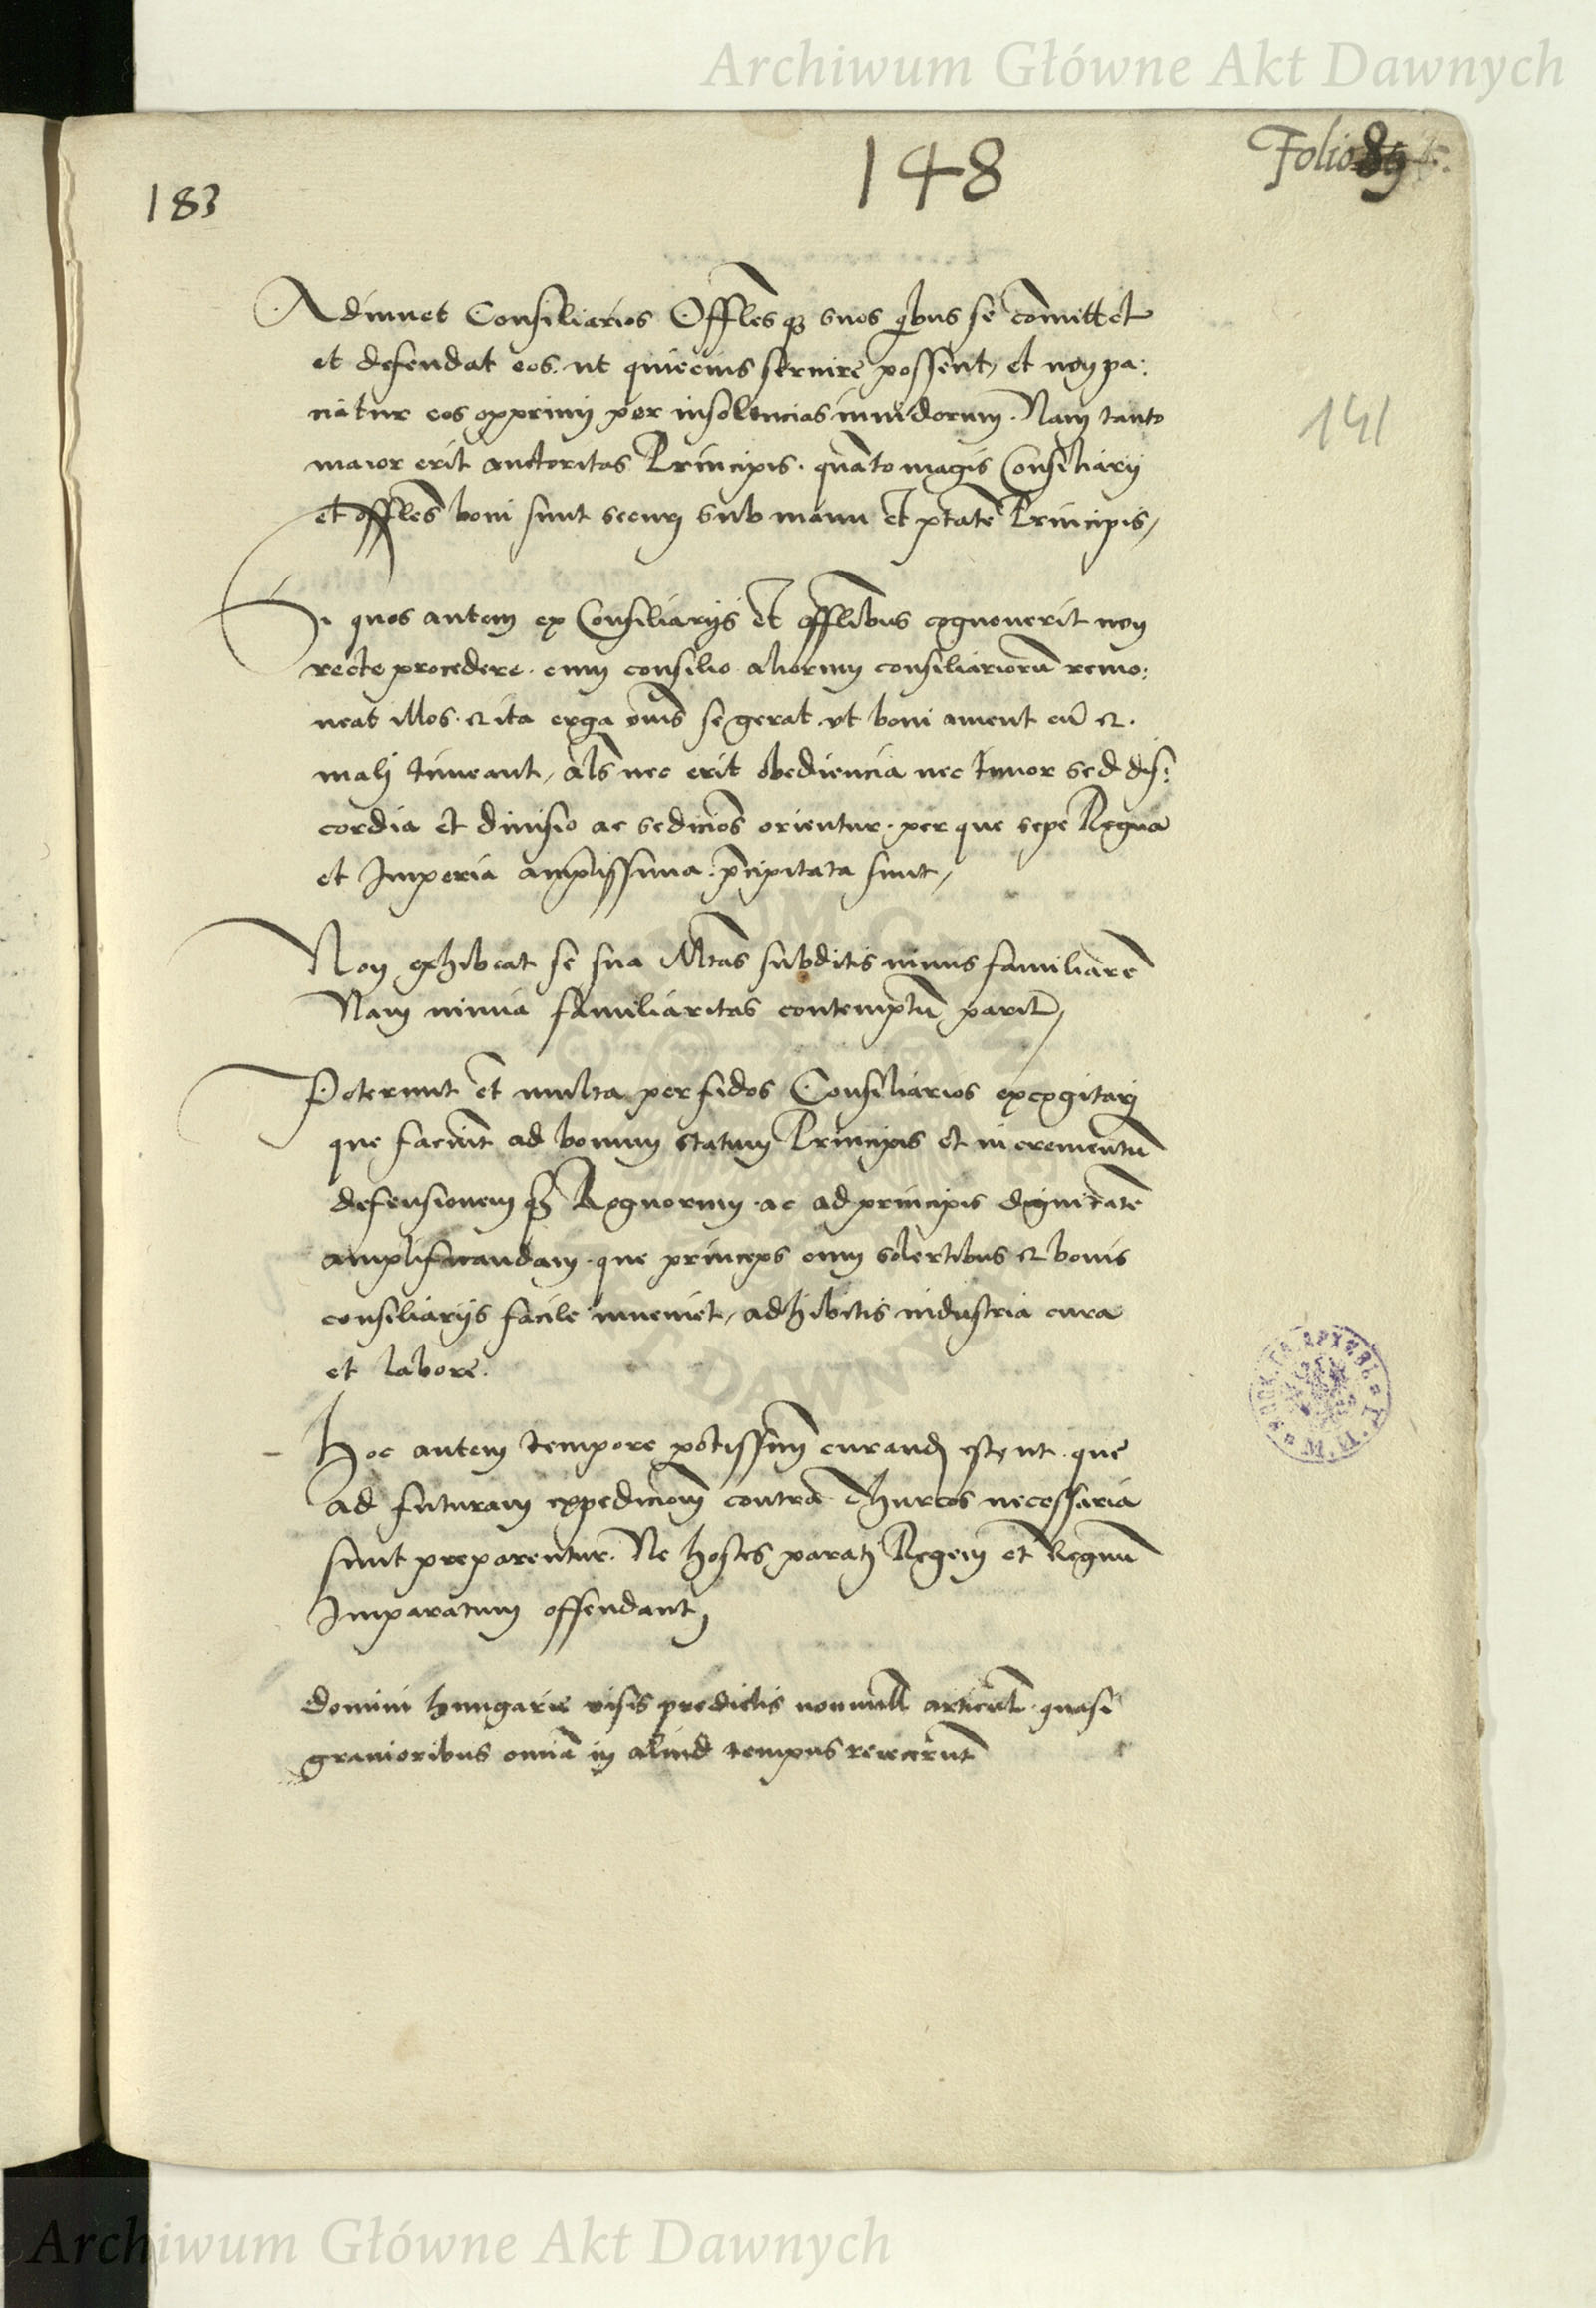 Archiwum Główne Akt Dawnych
148
Folio 89
183
Adiuuet Consiliarios Offlesqꝫ suos qͥbus se comittet
et defendat eos. ut quiecius seruire possent, et non pa:
ciatur eos opprimi per insolencias inuidorum. Nam tanto
141
maior erit auctoritas Principis. quāto magis Consiliarij
et offles boni sunt securi sub manu et ptātē Principis,
Si quos autem ex Consiliarijs et offlibus cognouerit non
recte procedere. cum consilio aliorum consiliariorū remo:
neat illos. et ita erga om̄s se gerat ut boni ament eū et.
mali timeant, als nec erit obediencia nec timor sed dis:
cordia et diuisio ac sediciōs orientur. per que sepe Regna
et Imperia amplissima. p̄cipitata sunt,
Non exhibeat se sua Mtas subditis nimis familiarē
Nam nimia familiaritas contemptū parit,
Poterunt et multa per fidos Consiliarios excogitari
que faciūt ad bonum statum Principis et in crementū
defensionem qꝫ Regnorum. ac ad principis dignitatē
amplificandam. que princeps cum solertibus et bonis
consiliarijs facile inueniet, adhibitis industria cura
et labore.
Hoc autem tempore potissim̄ curand essent. que
ad futuram expedicionm̄ contra Thurcos necessaria
sunt preparentur. Ne hostes parati Regem et Regnū
Imparatum offendant,
Domini hungarie visis predictis nonnull articul. quasi
grauioribus omīa in aliud tempus reiecerūt
Archiwum Główne Akt Dawnych